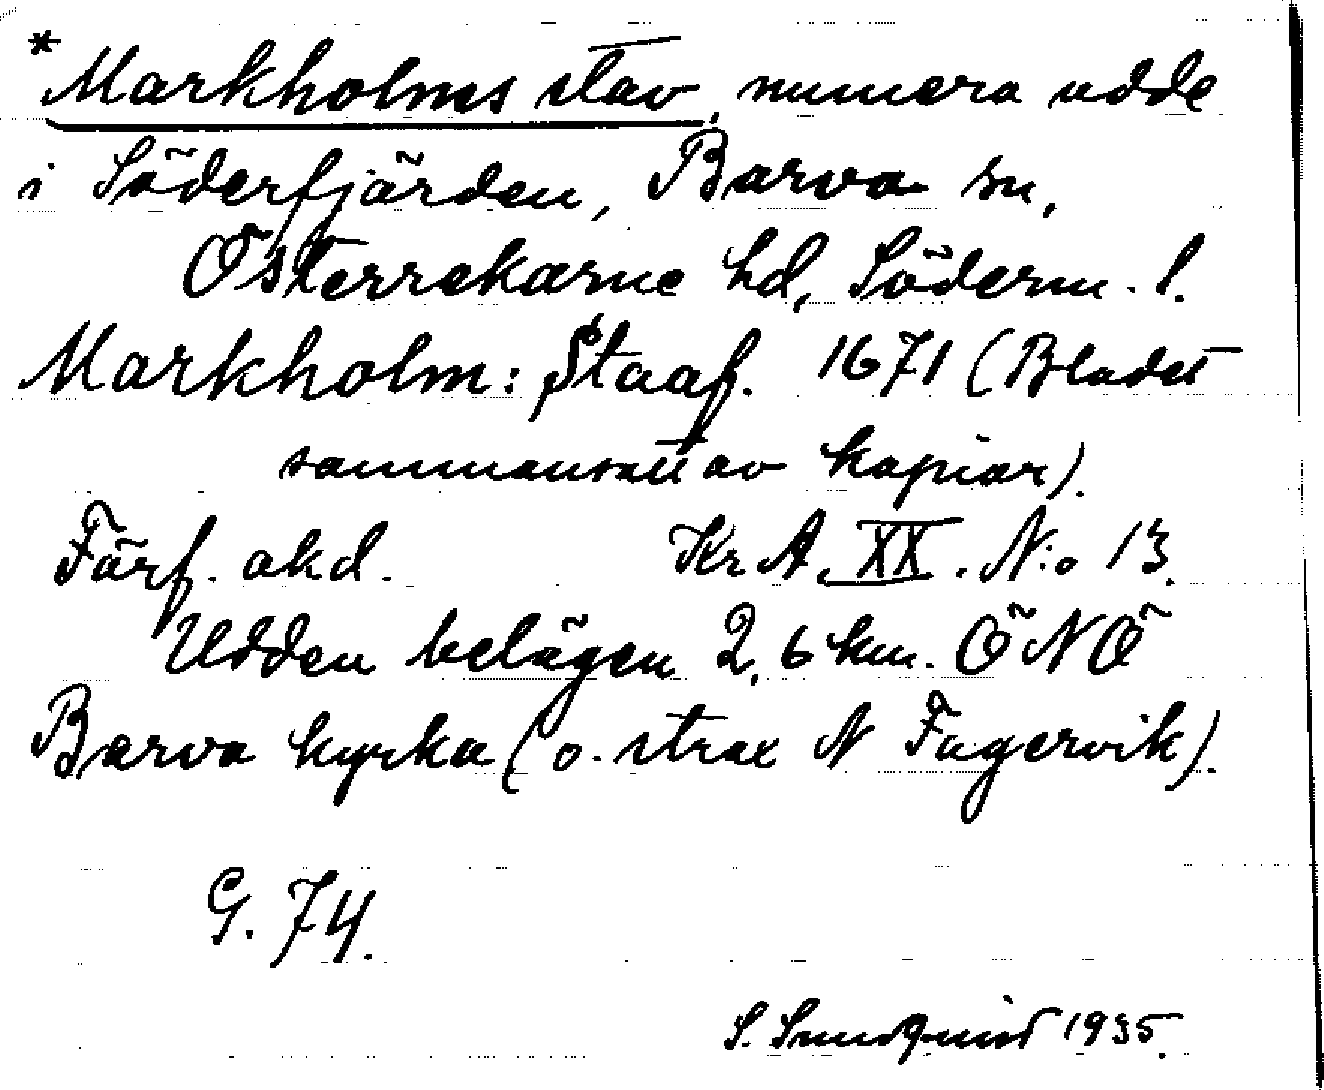 *Markholms stav, numera udde
i Söderfjärden, Barva sn,
Österrekarne hd, Söderm. l.
Markholm: Staaf. 1671 (Bladet
sammansatt av kopior).
Förf. okd. Kr A. XX. N:o 13.
Udden belägen 2,6 km. ÖNÖ
Barva kyrka (o. strax N Fagervik).
G. 74.
S. Sundquist 1935.